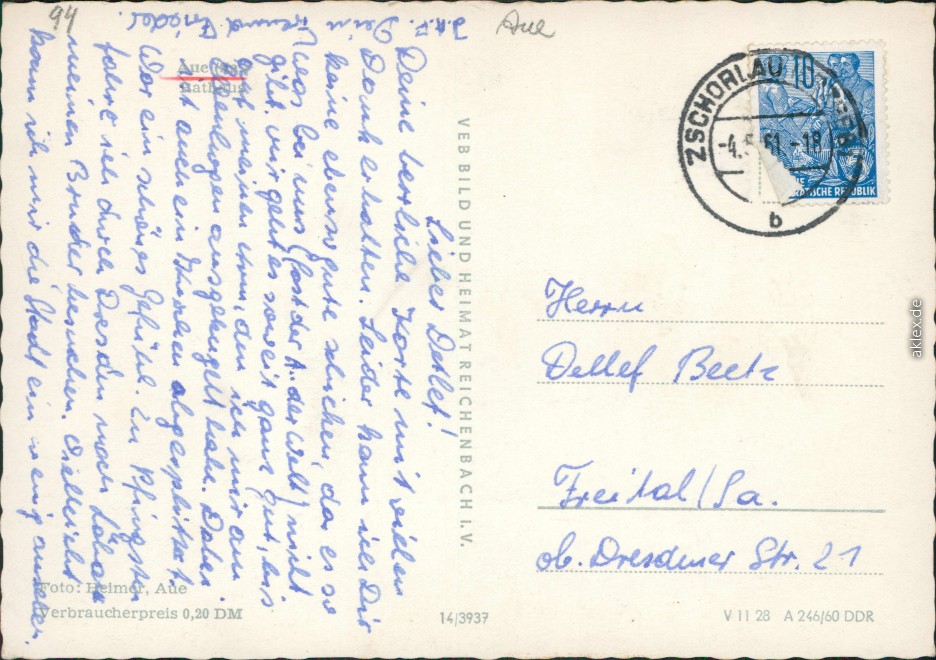 94
Aue
Lieber Detlef!
Deine herrliche Karte mit vielen
Dank erhalten. Leider kann ich Dir
keine ebenso gute schicken, da es so
was bei uns (fast der A. der Welt) nicht
gibt. Mir geht es soweit ganz gut, bis
auf meinen Arm, den ich mir am
Ellenbogen ausgekugelt habe. Dabei
ist auch ein Knochen abgesplittert.
War ein schönes Gefühl. Zu Pfingsten
fahre ich durch Dresden nach Löbau
meinen Bruder besuchen. Vielleicht
kann ich mir die Stadt ein wenig ansehen.
Dein Freund Friedel
Aue
Rathaus
Foto: Heimer, Aue
Verbraucherpreis 0,20 DM
VEB BILD UND HEIMAT REICHENBACH I. V.
14/3937
V 11 28 A 246/60 DDR
ZSCHORLAU
-4.5.61.-18
b
10
REPUBLIK
Herrn
Detlef Beetz
Freital/Sa.
ob. Dresdner Str. 21
aklex.de